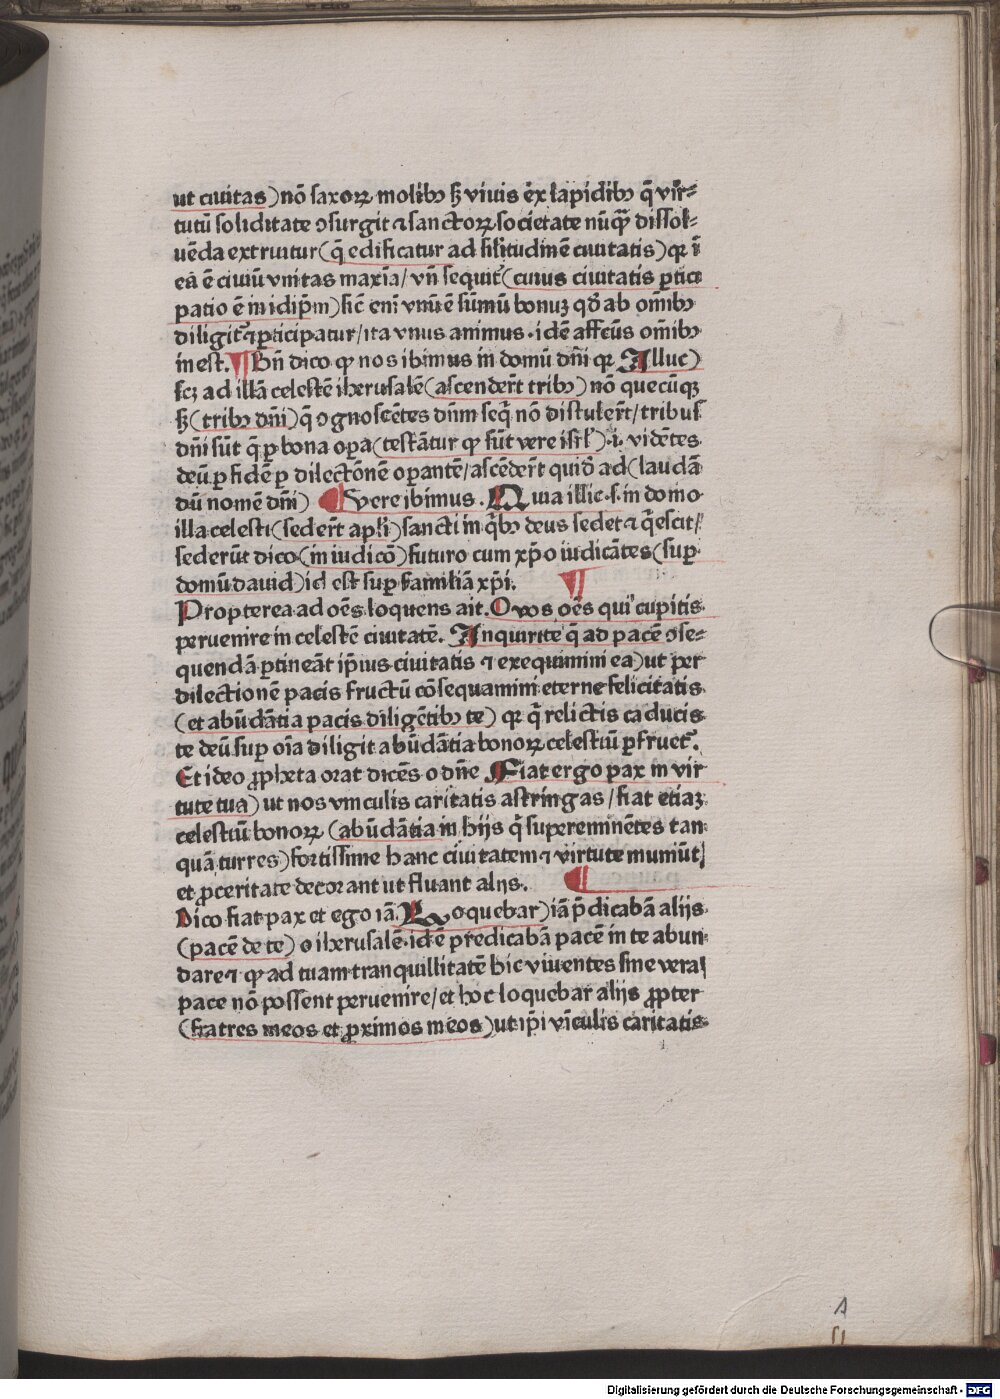 ut ciuitas) nō saxoꝝ molibꝰ sꝫ viuis ēx lapidibꝰ q̄ vir⸗
tutū soliditate ꝯsurgit ⁊ sanctoꝝ societate nūqꝫ dissol⸗
uēda extruitur (q̄ edificatur ad silitudinē ciuitatis) qꝛ ī
eā ē ciuiū vnitas maxīa / vn̄ sequit᷑ (cuius ciuitatis ꝑtici
patio ē in idip̄m) sic̄ eni vnū ē sūmū bonuꝫ qd̄ ab om̄ibꝰ
diligit᷑ ⁊ ꝑticipatur / ita vnus animus · idē affcūs om̄ibꝰ
inest. ¶ Bn̄ dico ꝙ nos ibimus in domū dn̄i qꝛ Illuc)
scꝫ ad illā celestē iherusalē (ascender̄t tribꝰ) nō quecūqꝫ
sꝫ (tribꝰ dn̄i) q̄ ꝯgnoscētes dn̄m seq̄ nō distuler̄t / tribus
dn̄i sūt q̄ ꝑ bona oꝑa (testātur ꝙ sūt vere isrl̄) ·i· vidētes
deū ꝑ fidē ꝑ dilectōnē oꝑantē / ascēder̄t quidē ad (laudā
dū nomē dn̄i) ¶ Vere ibimus. Quia illic ·s· in domo
illa celesti (seder̄t apl̄i) sancti in q̄bꝰ deus sedet ⁊ q̄escit /
sederūt dico (in iudicō) futuro cum xp̄o iudicātes (suꝑ
domū dauid) id est suꝑ familiā xp̄i. ¶
Propterea ad oēs loquens ait. O vos oēs qui cupitis
peruenire in celestē ciuitatē. Inquirite q̄ ad pacē ꝯse⸗
quendā ꝑtineāt ip̄ius ciuitatis ⁊ exequimini ea) ut per
dilectionē pacis fructū cōsequamini eterne felicitatis
(et abūdātia pacis diligētibꝰ te) qꝛ q̄ relictis caducis
te deū suꝑ oīa diligit abūdātia bonoꝝ celestiū ꝑfruet᷑.
Et ideo ꝓpheta orat dicēs o dn̄e Fiat ergo pax in vir
tute tua) ut nos vinculis caritatis astringas / fiat etiaꝫ
celestiū bonoꝝ (abūdātia in hijs q̄ supereminētes tan
quā turres) fortissime hanc ciuitatem ⁊ virtute muniūt /
et ꝓceritate decorant ut fluant alijs. ¶
Dico fiat pax et ego iā. Loquebar) iā p̄dicabā alijs
(pacē de te) o iherusalē · idē predicabā pacē in te abun
dare ⁊ ꝙ ad tuam tranquillitatē hic viuentes sine vera
pace nō possent peruenire / et hoc loquebar alijs ꝓpter
(fratres meos et ꝓximos meos) ut ip̄i vīculis caritatis
A
Digitalisierung gefördert durch die Deutsche Forschungsgemeinschaft - DFG